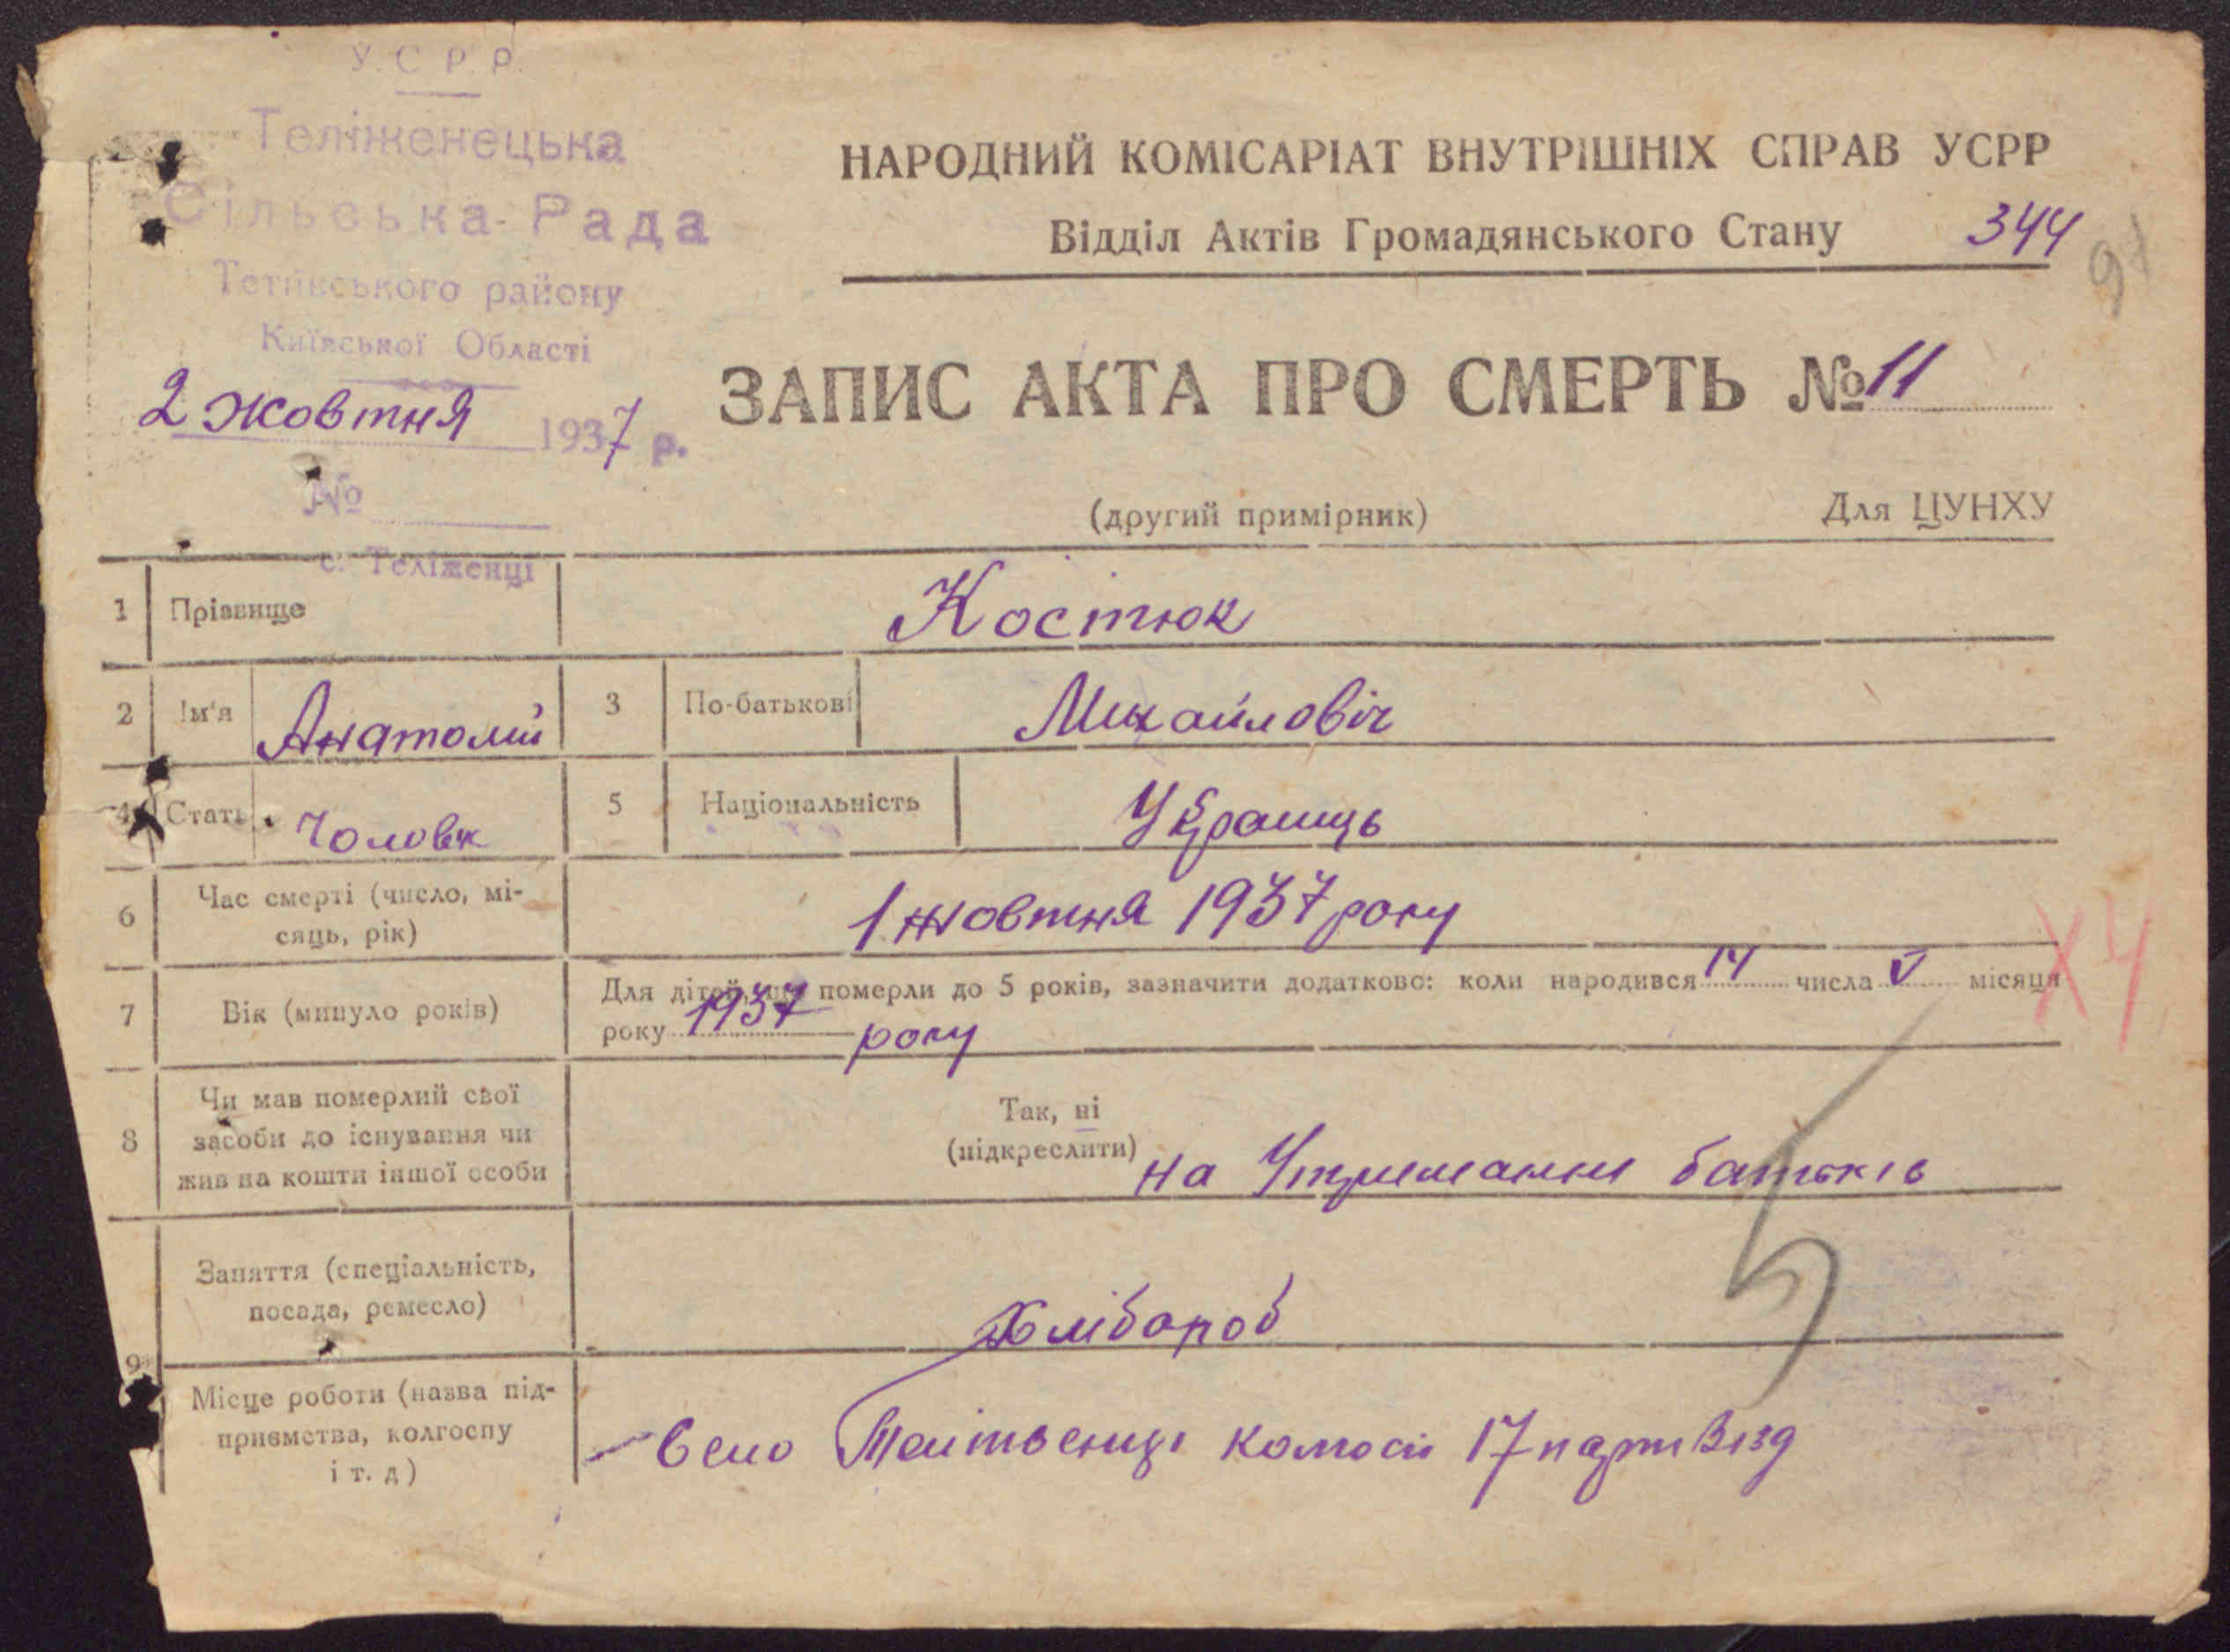 У.С.Р.Р.
Теліженецька
Сільська Рада
Тетіївського району
Київської Області
2 жовтня 1937 р.
№
с. Теліженці
НАРОДНИЙ КОМІСАРІАТ ВНУТРІШНІХ СПРАВ УСРР
Відділ Актів Громадянського Стану 344
ЗАПИС АКТА ПРО СМЕРТЬ № 11
(другий примірник) Для ЦУНХУ
1 Прізвище Костюк
2 Ім'я Анатолий 3 По-батькові Михайловіч
4 Стать Чоловік 5 Національність Українць
6 Час смерті (число, мі-
сяць, рік) 1 жовтня 1937 року
7 Вік (минуло років) Для дітей, що померли до 5 років, зазначити додатково: коли народився 14 числа V місяця
року 1937 року
8 Чи мав померлий свої
засоби до існування чи
жив на кошти іншої особи
Так, ні
(підкреслити) на Утриманні батьків
9 Заняття (спеціальність,
посада, ремесло) Хлібороб
Місце роботи (назва під-
приємства, колгоспу
і т. д) 17 партзізд
Х4